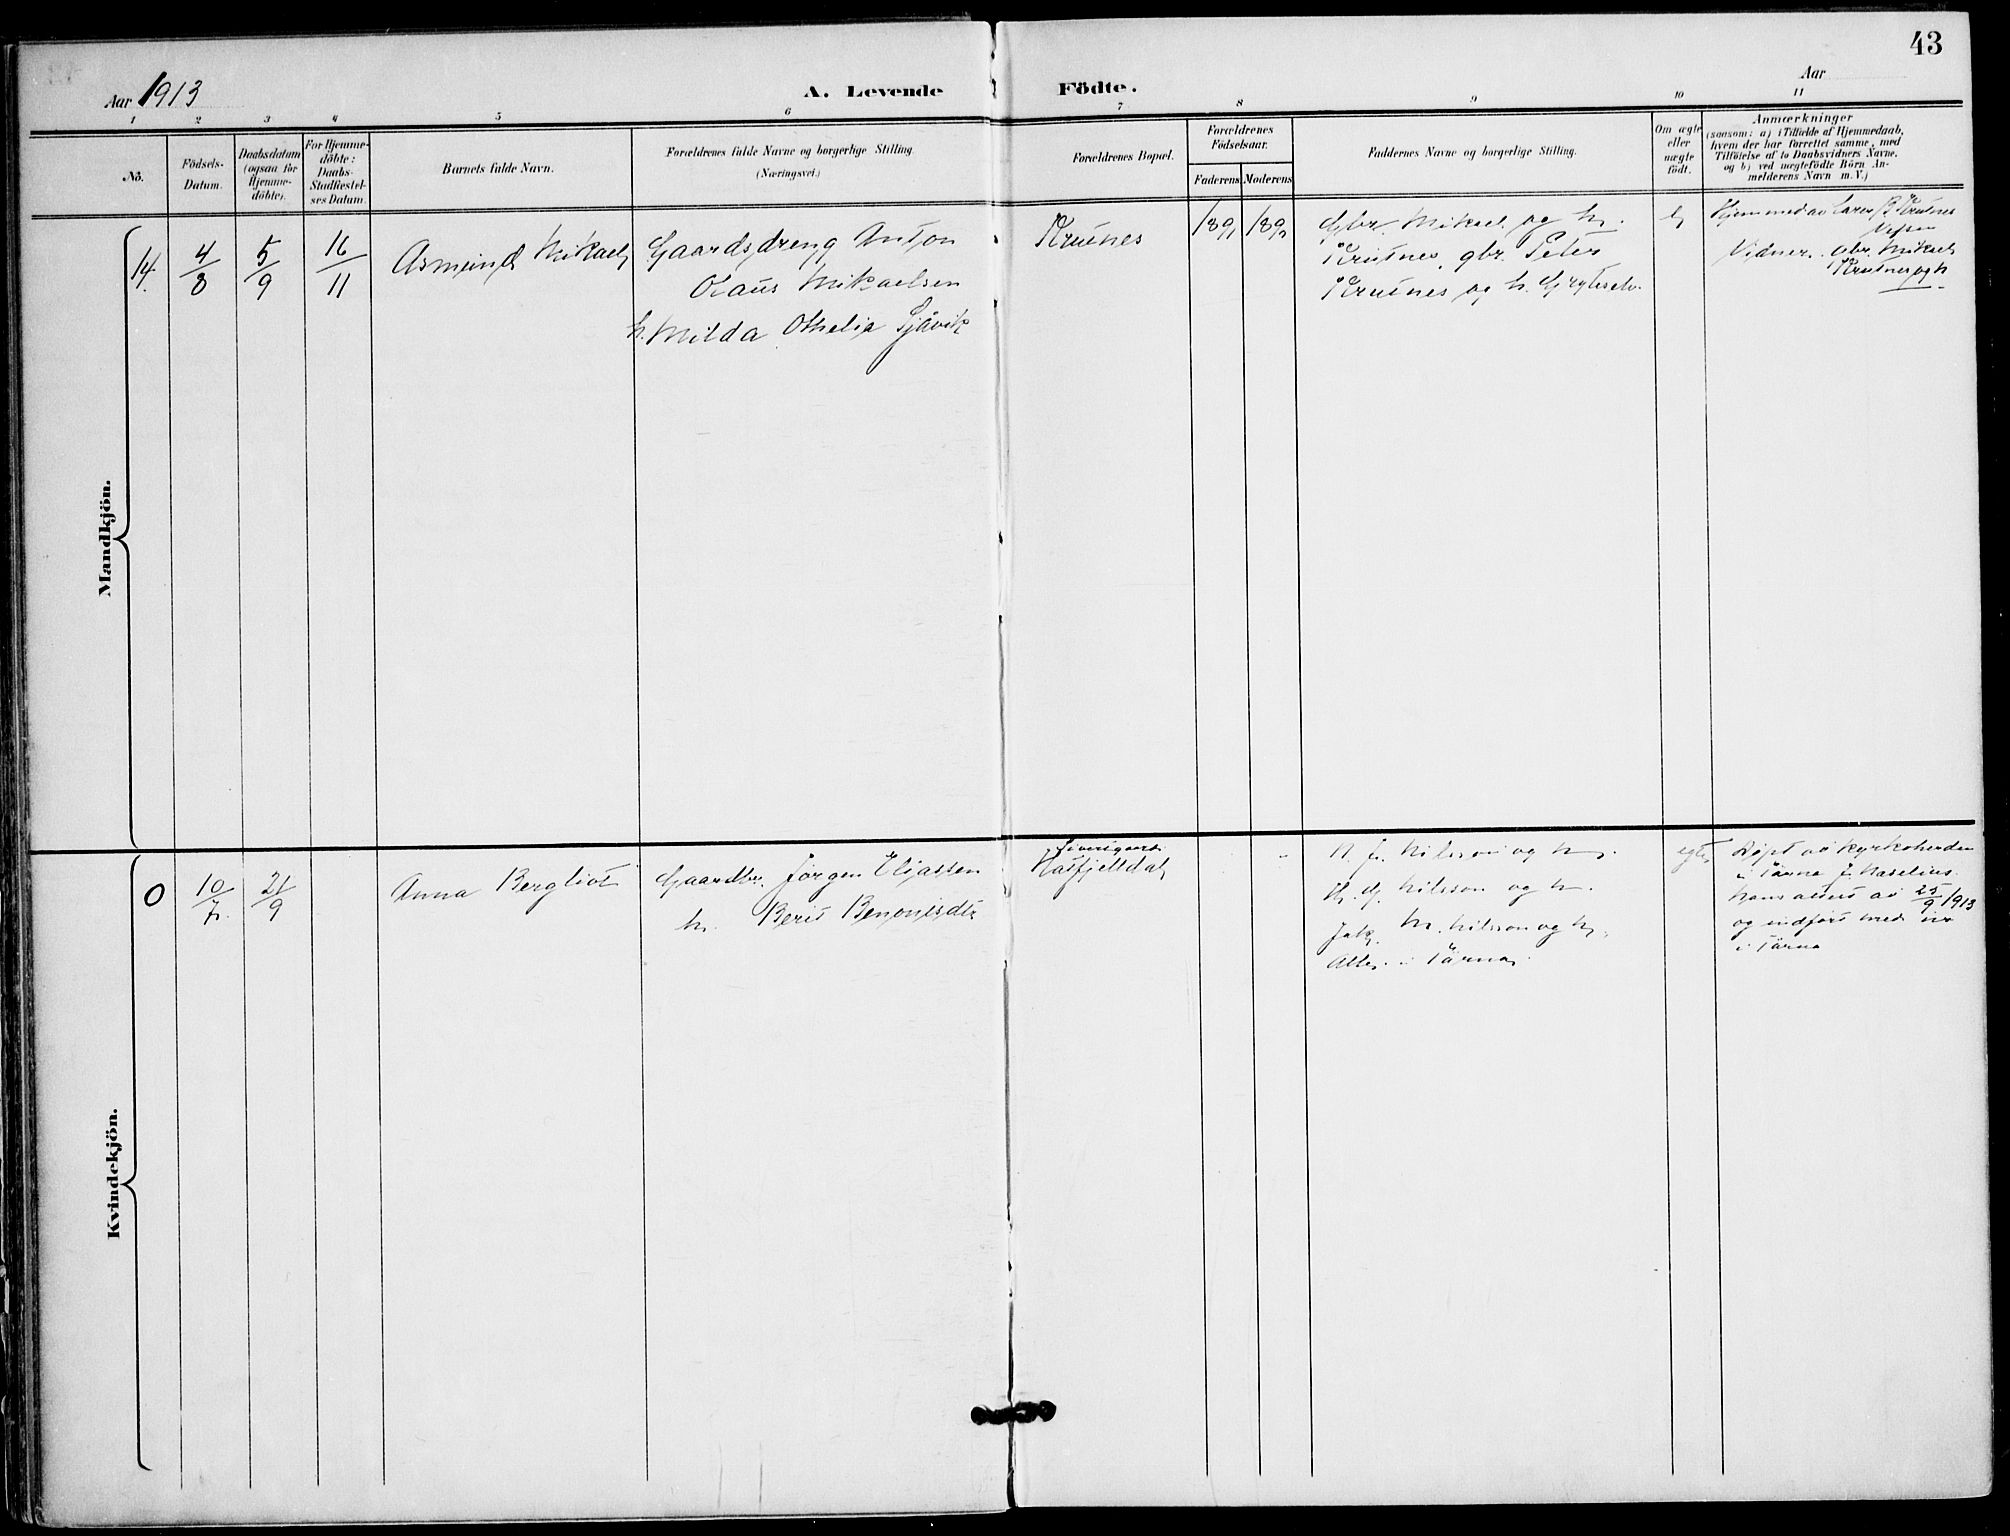 43
Aar 1913
A. Levende Födte.
Aar
1 2 3 4 5 6 7 8 9 10 11
No.
Födsels-
Datum.
Daabsdatum
(ogsaa for
Hjemme-
döbte).
For Hjemme-
döbte:
Daabs-
Stadfæstel-
ses Datum.
Barnets fulde Navn.
Forældrenes fulde Navne og borgerlige Stilling
(Næringsvei.)
Forældrenes Bopæl.
Forældrenes
Födselsaar.
Faderens
Moderens
Faddernes Navne og borgerlige Stilling.
Om ægte
eller
uægte
födt.
Anmærkninger
(saasom: a) i Tilfælde af Hjemmedaab,
hvem der har forrettet samme, med
Tilföielse af to Daabsvidners Navne.
og b) ved uægtefödte Börn An-
melderens Navn m. V.)
Mandkjön.
14.
4/8
5/9
16/11
Asmund Mikael
Gaardsdreng Anton
Olaus Mikaelsen
h. Milda Othelia Sjåvik
Krutnes
Gbr. Mikael og h.
Krutnes, gbr. Peter
Krutnes og h.
Hjemmed av Lærer Krutnes
Vefsn
Vidner: gbr. Mikael
Krutnes og h.
Kvindekjön.
0
10/7.
21/9
Anna Bergliot
Gaardbr. Jørgen Eljassen
h. Berit Benonisdtr
Hatfjelldal
Nilsson og h.
Nilsson og h.
Nilsson og h.
Alle i Tärna.
egte
Døpt av kyrkoherden
i Tärna
attest av 25/9 1913
og indført med
i Tärna